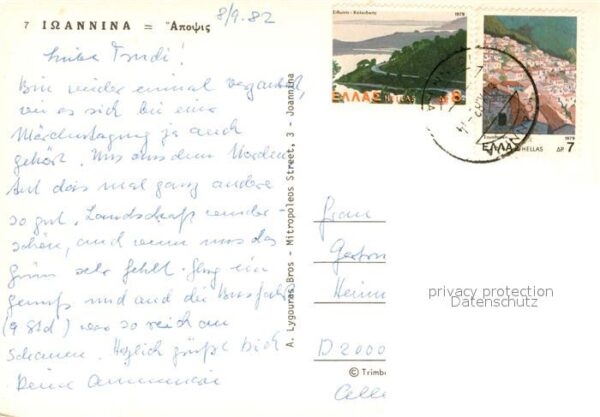 7 ΙΩΑΝΝΙΝΑ = Ἄποψις
8/9.82
Liebe Trudi!
Bin wieder einmal
wie es sich bei einer
Märchentagung ja auch
gehört. Uns aus dem Norden
tut das mal ganz andere
so gut. Landschaft wunder-
schön, auch wenn uns das
Grün sehr fehlt. Flug ein
Genuß und auch die Busfahrt
(9 Std) war so reich an
Schauen. Herzlich grüßt Dich
Deine Annemarie
A. Lygouras Bros - Mitropoleos Street, 3 - Joannina
1979
ΕΛΛΑΣ HELLAS ΔΡ 8
1979
ΕΛΛΑΣ HELLAS ΔΡ 7
Frau
D 2000
Celle
© Trimbo
privacy protection
Datenschutz